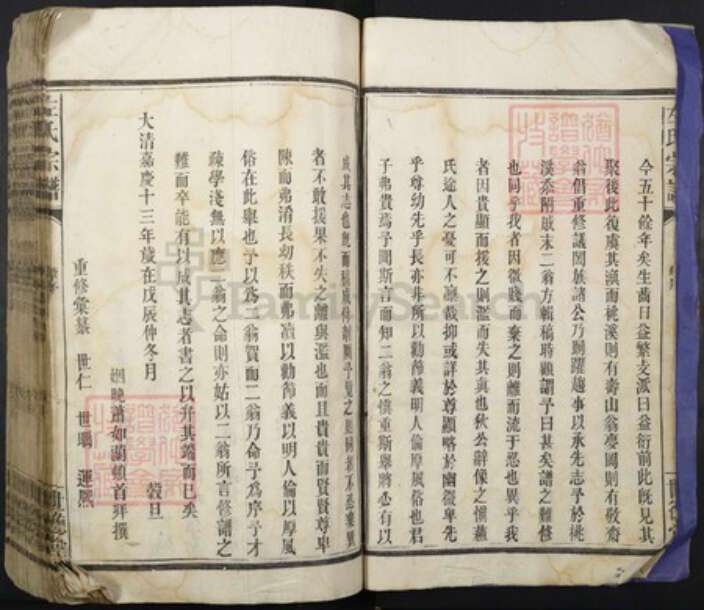 今五十餘年矣生齒日益繁支派日益衍前此旣見其
聚後此復虞其渙而桃溪則有壽山翁慶岡則有敬齋
翁倡重修議閤族諸公乃踴躍趨事以承先志予於桃
溪忝附戚末二翁方輯稿聘顧謂予曰甚矣譜之難修
也同乎我者因微賤而棄之則離而流于忍也異乎我
者因貴顯而援之則濫而失其眞也狄公辭像之慎蘇
氏途人之憂可不凜哉抑或詳於尊顯略於幽微卑先
乎尊幼先乎長亦非所以勸節義明人倫厚風俗也君
子弗貴焉予聞斯言而知二翁之慎重斯舉將必有以
成其志也旣而稿成
者不敢援果不失之離與濫也而且貴貴而賢賢尊卑
陳而弗淆長幼秩而弗瀆以勸節義以明人倫以厚風
俗在此舉也予以爲二翁賀而二翁乃命予爲序予才
疎學淺無以應二翁之命則亦姑以二翁所言修譜之
難而卒能有以成其志者書之以弁其端而已矣
大清嘉慶十三年歲在戊辰仲冬月 穀旦
姻晚蕭如蘭頓首拜撰
重修彙纂 世仁 世 運熙
左氏宗譜
左氏宗譜
FamilySearch